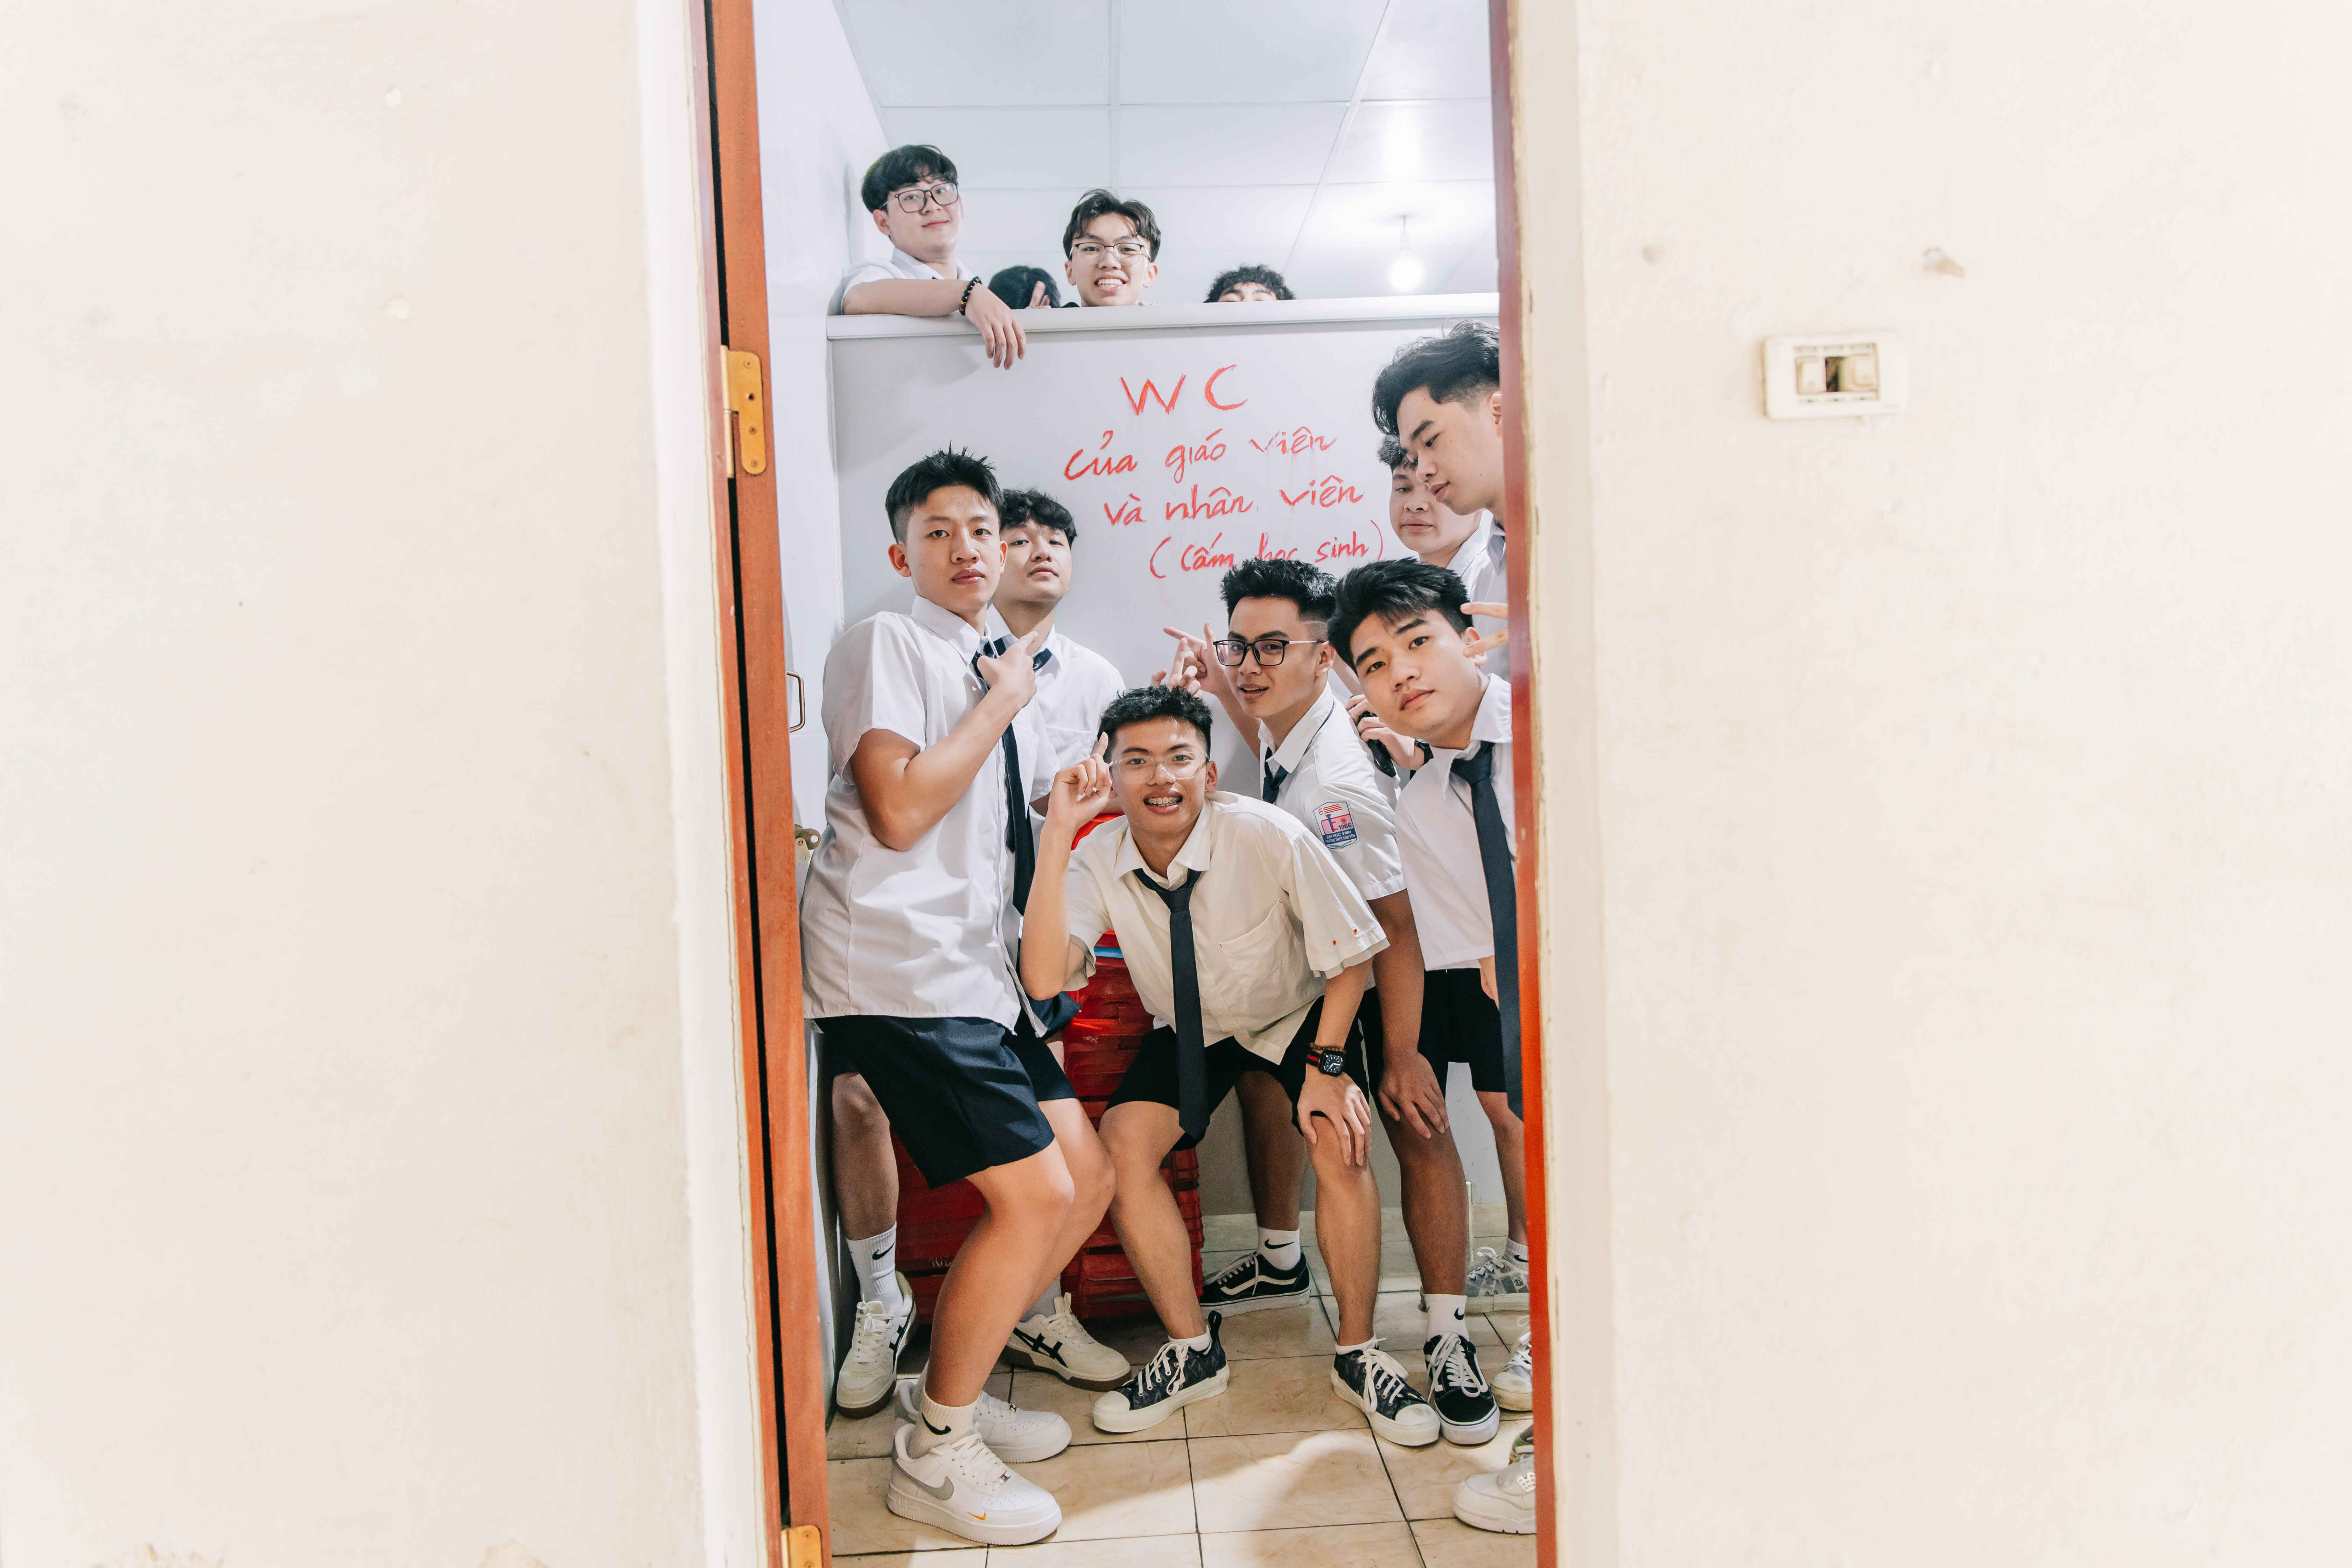 WC
của giáo viên
và nhân viên
(Cấm học sinh)